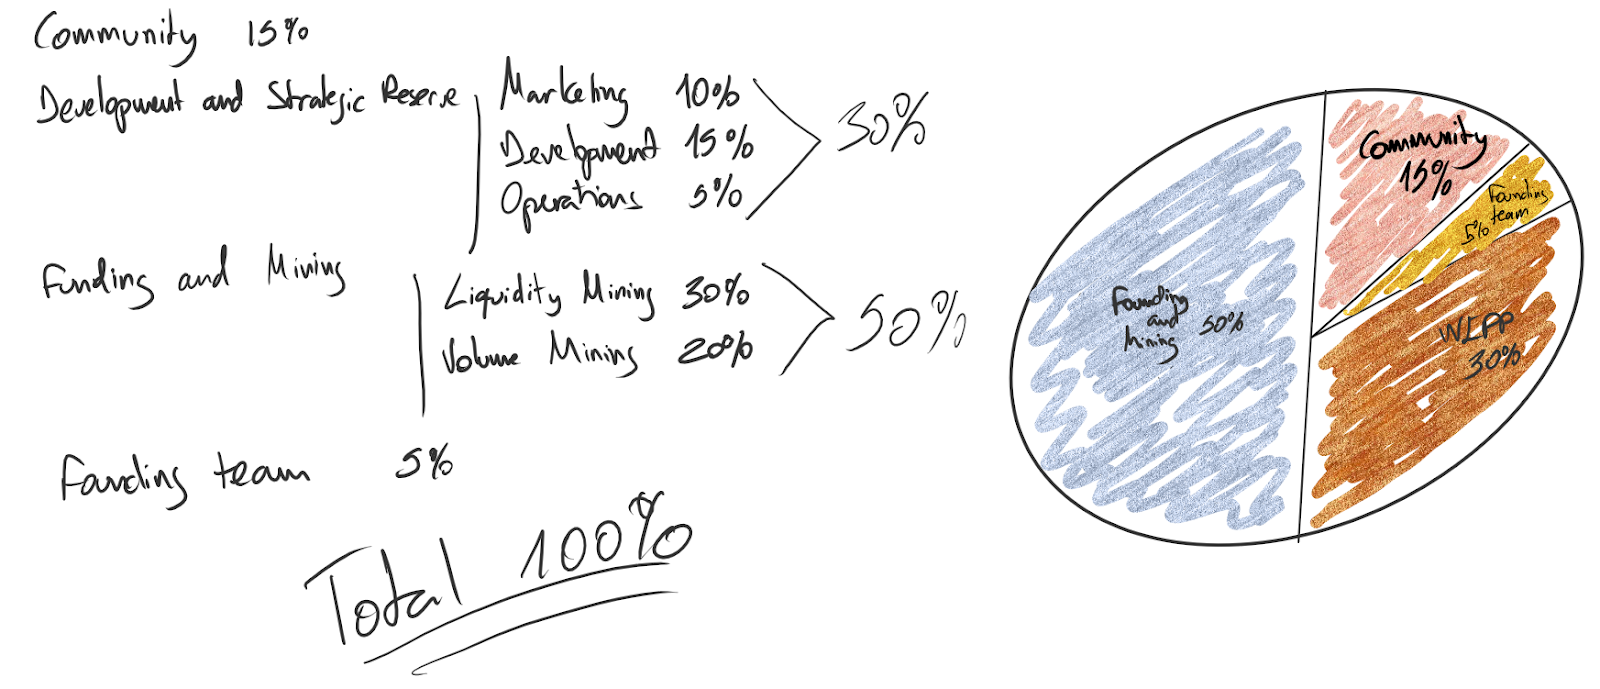 Community 15%
Development and Strategic Reserve
Marketing 10%
Development 15%
Operations 5%
30%
Funding and Mining
Liquidity Mining 30%
Volume Mining 20%
50%
Founding team 5%
Total 100%
Community
15%
Founding
team
5%
Founding
and
Mining
50%
WLPP
30%